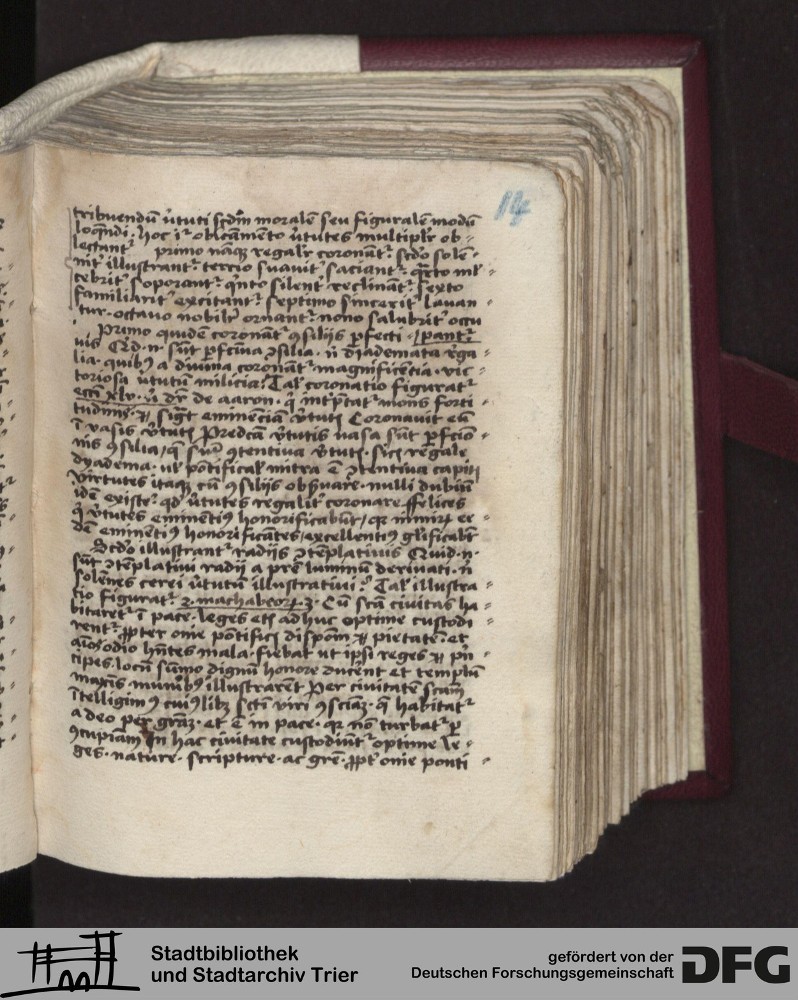 14
tribuendū v̄tuti scdm̄ moralē seu figuralē modū
loq̄ndi · hoc iͬ oblectamēto v̄tutes multiplr̄ ob-
lectantͬ · primo nāqꝫ regalr̄ coronantͬ · scdo solē-
nitͬ illustrantͬ · tercio suauitͬ saciantͬ · q̄rto
cebritͬ soporantͬ · q̄nto silentͬ reclinātͬ · sexto
familiaritͬ excitantͬ · septimo sinceritͬ lauan-
tur · octauo nobilitͬ ornantͬ · nono salubritͬ occu
Primo quidem coronātͬ ꝯsilijs ꝑfecti- pantͬ
uis Qͥd · n · sūt ꝑfectiua ꝯsilia · n̄ dyademata rega-
lia · quibꝰ a diuina coronātͬ magnificētia · vic-
toriosa v̄tutū milicia · Tal̄ coronatio figuratͬ
ecci xlv · v̄ dr̄ de aaron · q̄ int̄p̄tatͬ mons forti-
tudinis · ⁊ sigͭt eminēciā v̄tutꝭ Coronauit eū
ī vasis v̄tutꝭ Predcā v̄tutis uasa sūt ꝑfectio-
nis ꝯsilia / q̄ sūt ꝯtentiua v̄tutꝭ · sicut regale
dyadema · ul̄ pōtifical̄ mitra ē ꝯtentiua capitꝭ
Virtutes itaqꝫ cū ꝯsilijs obẜuare · nulli dubiū
idē existeͬ qd̄ v̄tutes regalitͬ coronare ffelices
q̄ v̄tutes eminētiꝰ honorificabūt / qꝛ nimiꝝ ee-
dē eminētiꝰ honorificātes / excellentiꝰ gl̄ificabūt
Scdo illustrantͬ radijs ꝯtēplatiuis Quid · n ·
sūt ꝯtēplatiui radij a pr̄e luminū deriuati · n̄
solēnes cerei v̄tutū illustratiui · Tal̄ illustra-
tio figuratͬ 2 · machabeoꝝ · 3 · Cū scā ciuitas ha-
bitaretͬ ī pace · leges etiā adhuc optime custodi-
rentͬ · ꝓpter onie pōtificꝭ dispōem ⁊ pietatē · et
aīos odio hn̄tes mala · fiebat ut ipsi reges ⁊ pn̄-
cipes · locū sūmo dignū honore ducēnt et templū
maxīs munibꝰ illustrarēnt Per ciuitatē scām
ītelligimꝰ cuiꝰlibꝫ scti viri ꝯsciāꝫ · q̄ habitatͬ
a deo per grāꝫ · et ē in pace · qꝛ nō turbatͬ ꝑ
ꝯcupiam In hac ciuitate custodiūtͬ optime le-
ges · nature · scripture · ac grē · ꝓptͬ onie ponti-
Stadtbibliothek
und Stadtarchiv Trier
gefördert von der
Deutschen Forschungsgemeinschaft
DFG